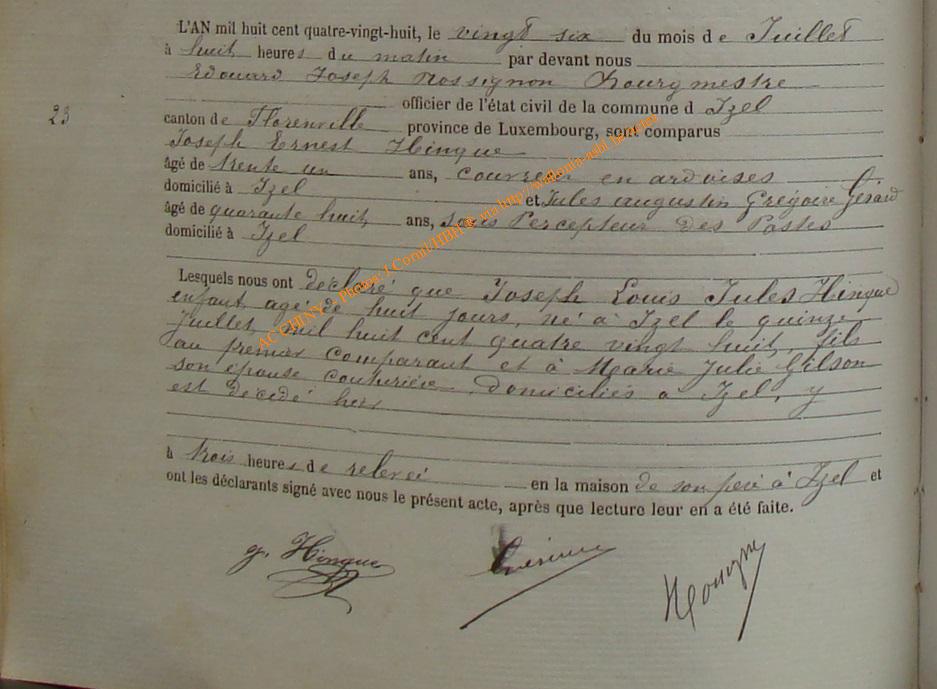 L'AN mil huit cent quatre-vingt-huit, le vingt six du mois de Juillet
à huit heures du matin par devant nous
Edouard Joseph Rossignon Bourgmestre
officier de l'état civil de la commune d Izel
23
canton de Florenville province de Luxembourg, sont comparus
Joseph Ernest Hinque
âgé de trente un ans, couvreur en ardoises
domicilié à Izel et Jules augustin Grégoire Gérard
âgé de quarante huit ans, sous Percepteur des Postes
domicilié à Izel
Lesquels nous ont déclaré que Joseph Louis Jules Hinque
enfant, agé de huit jours, né à Izel le quinze
Juillet mil huit cent quatre vingt huit, fils
au premier comparant et à Marie Julie Gilson
son épouse couturière domiciliés à Izel, y
est décédé hier
à trois heures de relevée en la maison de son père à Izel et
ont les déclarants signé avec nous le présent acte, après que lecture leur en a été faite.
J. Hinque
AC CHINY - Photos: J.Cornil/HBH @ via http://wallonia-asbl.be